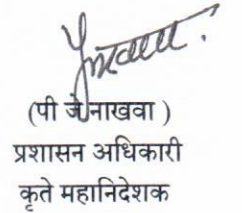 (पी जे नाखवा )
प्रशासन अधिकारी
कृते महानिदेशक